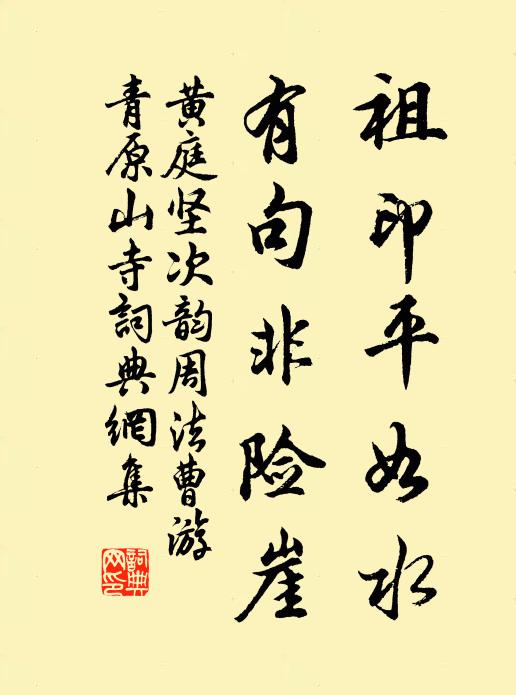 祖印平如水
有句非险崖
黄庭坚次韵周法曹游
青原山寺詞典網集